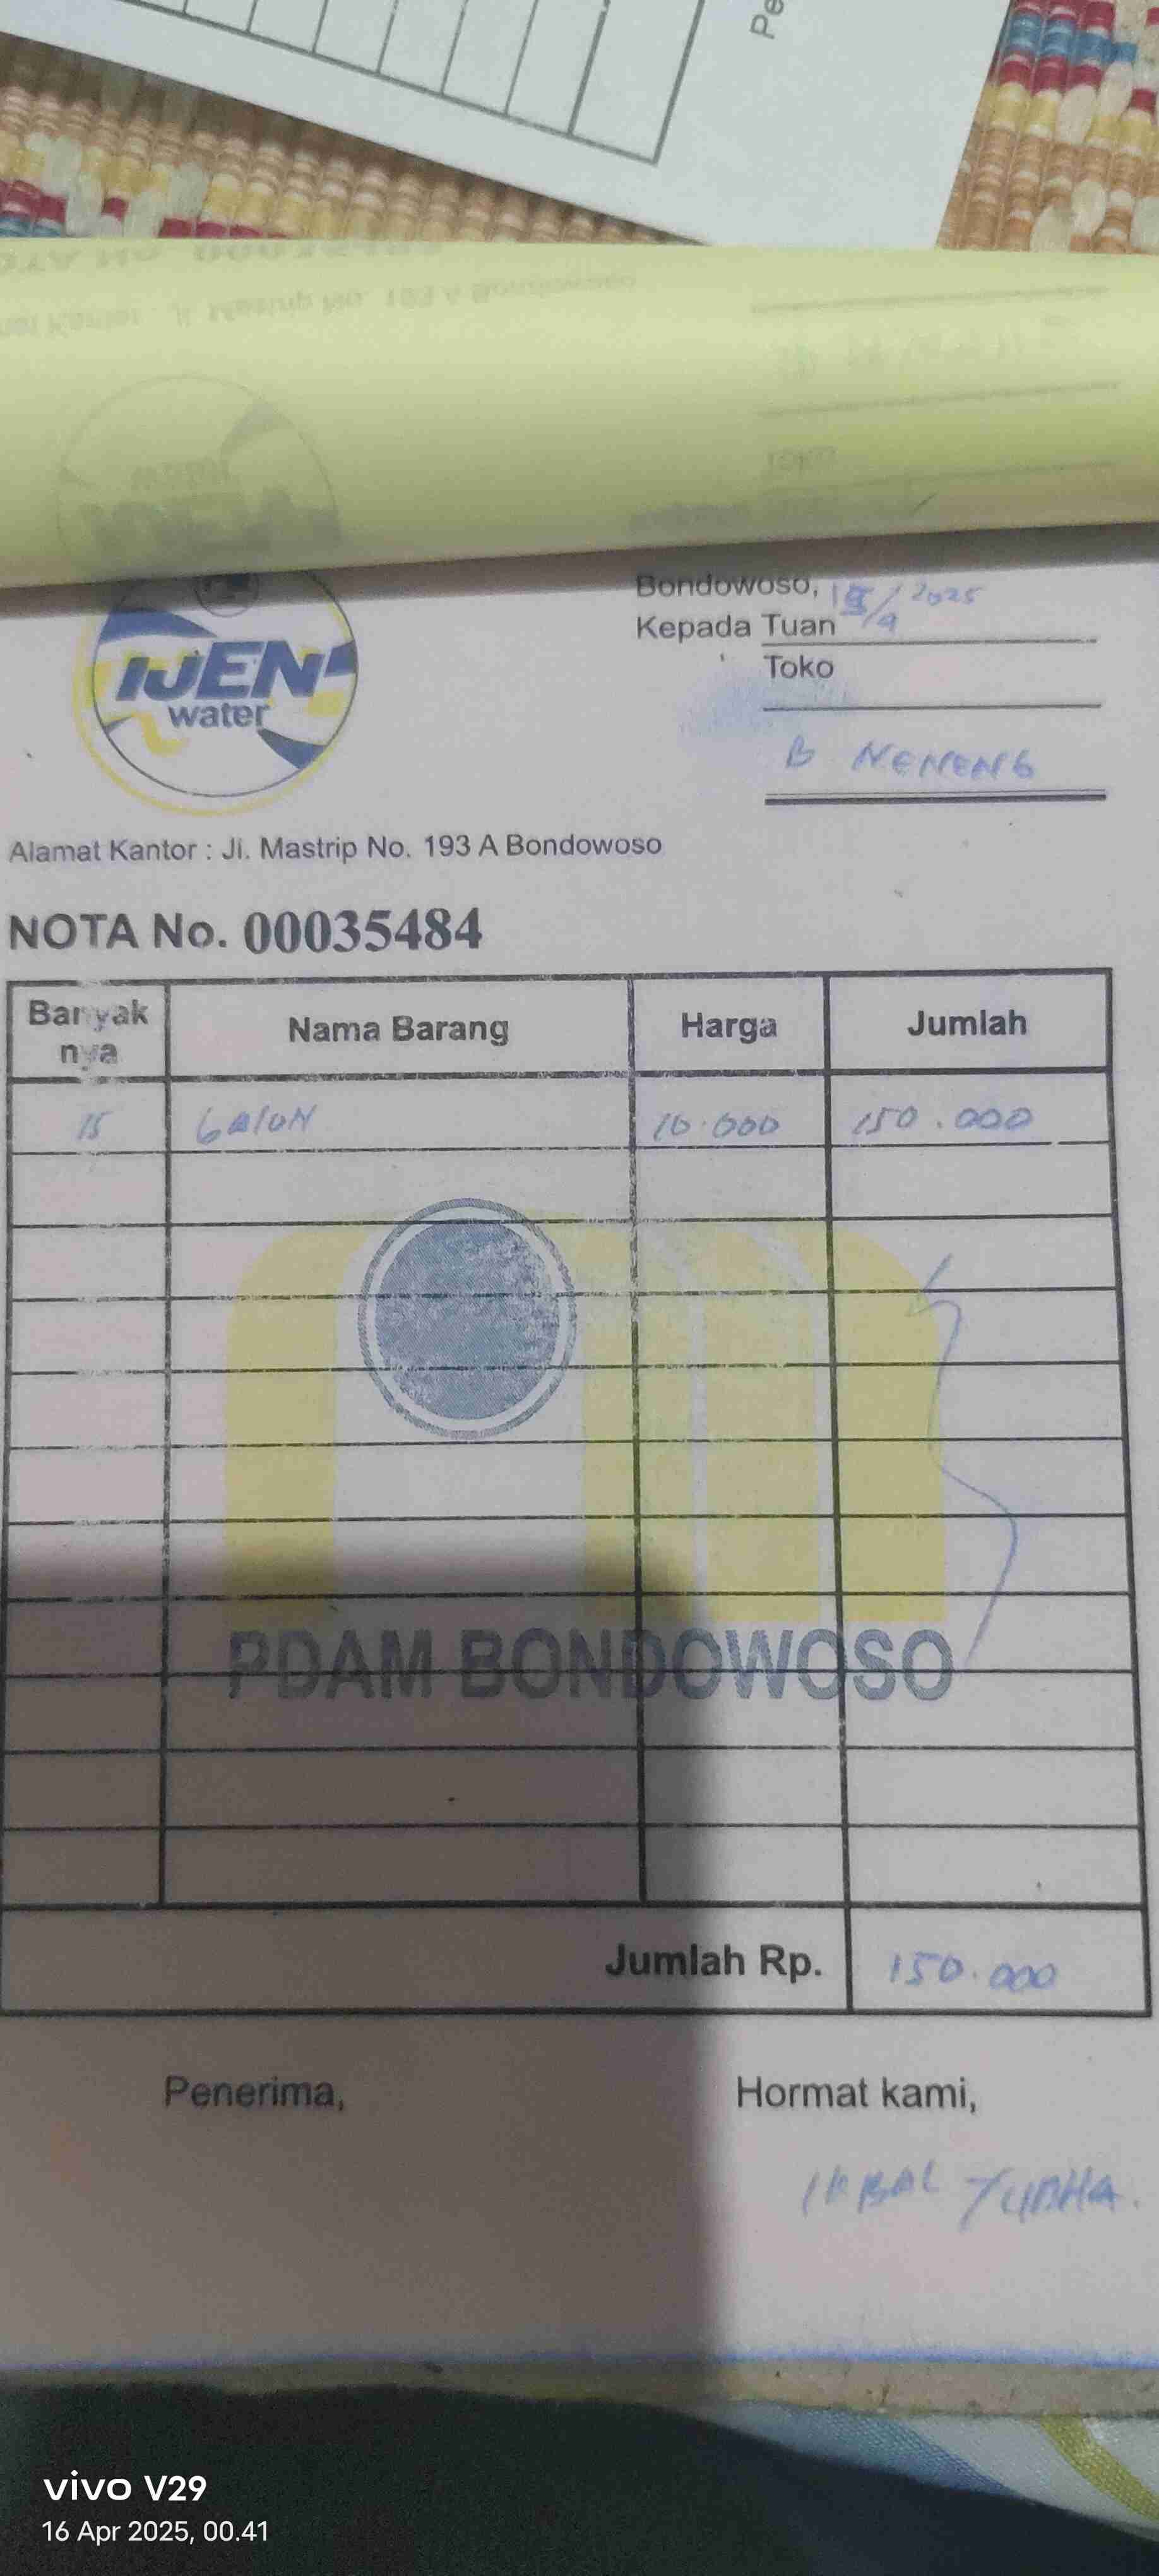 Pe
IJEN
water
Bondowoso, 2025
Kepada Tuan
Toko
B NENENG
Alamat Kantor : Jl. Mastrip No. 193 A Bondowoso
NOTA No. 00035484
Banyak nya Nama Barang Harga Jumlah
15 GALON 10.000 150.000
PDAM BONDOWOSO
Jumlah Rp. 150.000
Penerima, Hormat kami,
IKBAL
vivo V29
16 Apr 2025, 00.41